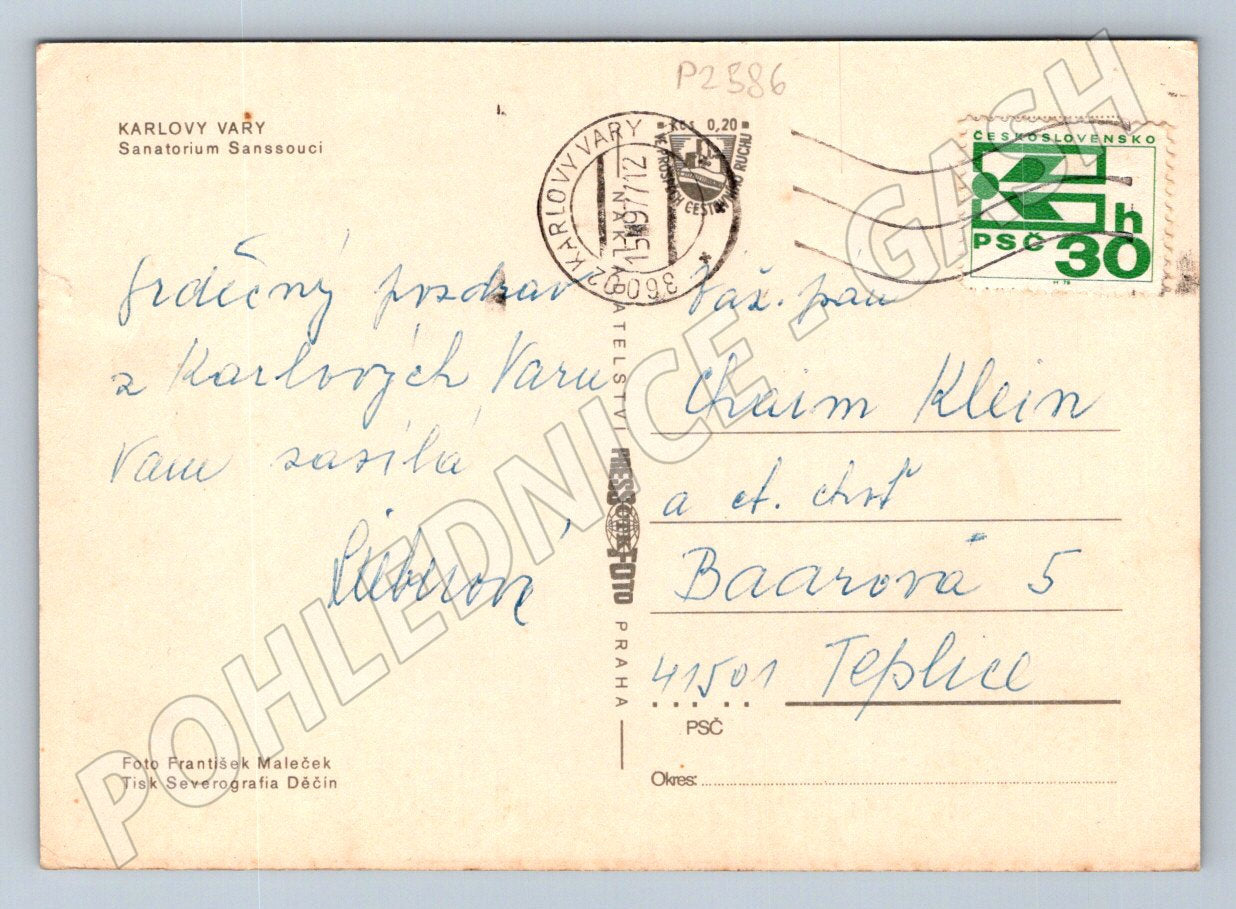 P2586
KARLOVY VARY
Sanatorium Sanssouci
Kčs 0,20
VE PROSPĚCH CESTOVNÍHO RUCHU
2 KARLOVY VARY
360 02
ČESKOSLOVENSKO
PSČ 30 h
Srdečný pozdrav
z Karlových Varů
Vám zasílá
Váž. pan
Chaim Klein
a ct. choť
Baarová 5
41501 Teplice
PSČ
Okres:
NAKLADATELSTVÍ PRESSFOTO PRAHA
Foto František Maleček
Tisk Severografia Děčín
POHLEDNICE - GASH